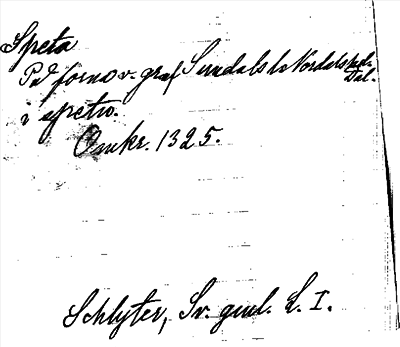 Speta
På fornsv. graf Sundals l. Nordals hd.
Dal.
i spetu.
Omkr. 1325.
Schlyter, Sv. guml. L. I.